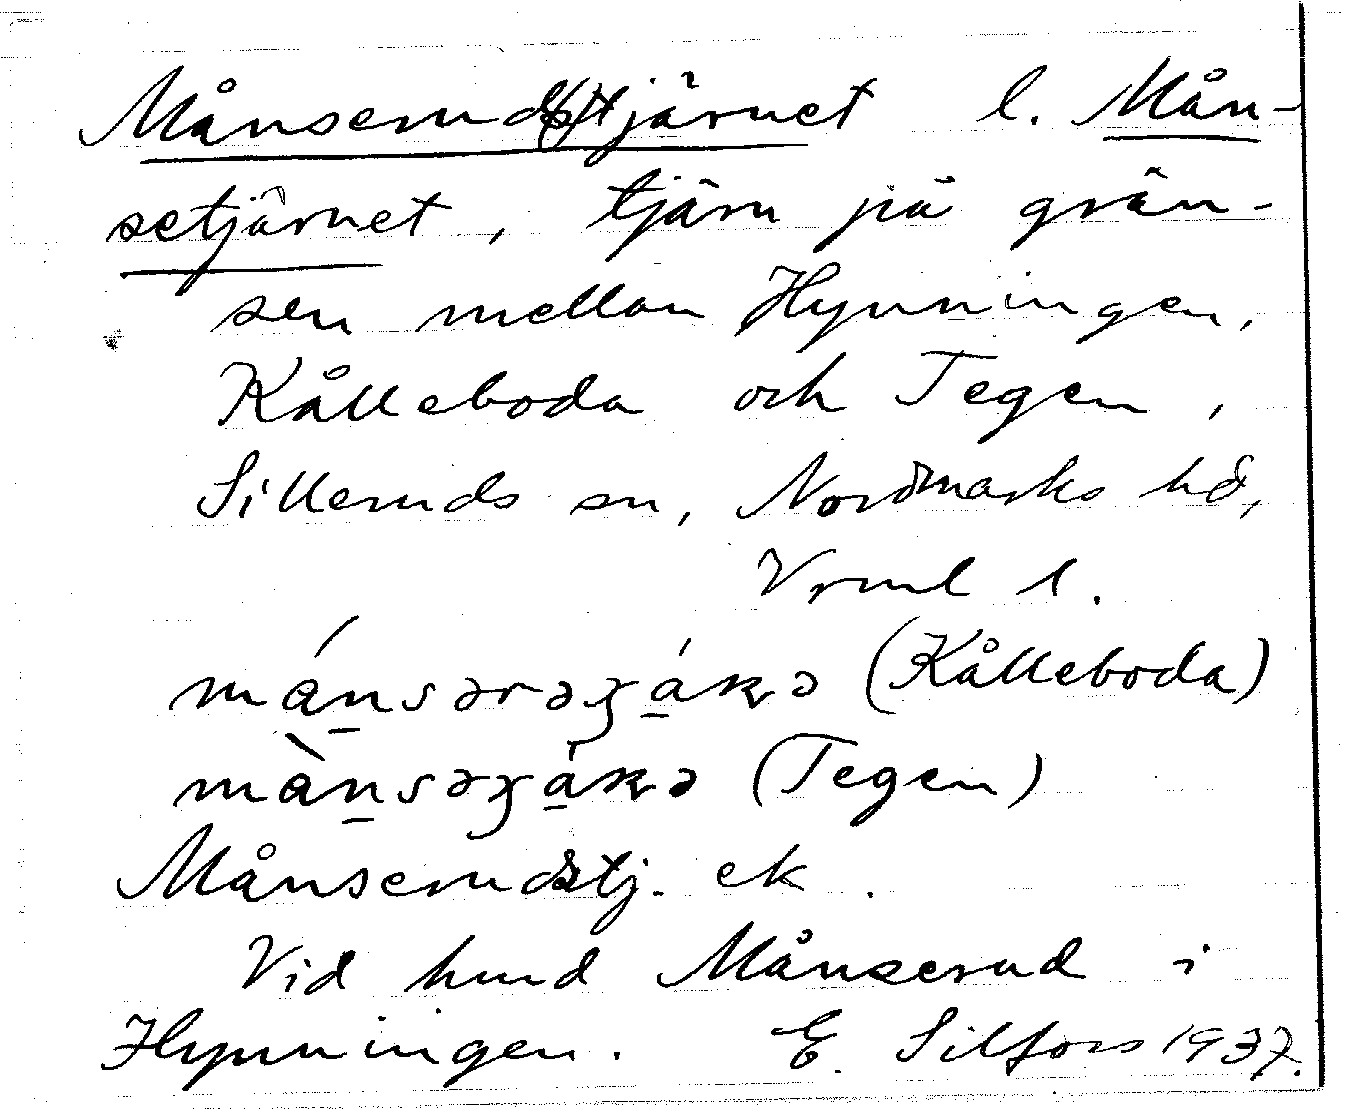 Månserudstjärnet l. Mån-
setjärnet, tjärn på grän-
sen mellan Hynningen,
Kålleboda och Tegen,
Silleruds sn, Nordmarks hd,
Vrml l.
(Kålleboda)
(Tegen)
Månserudstj. ek.
Vid hmd Månserud i
Hynningen. E. Silfors 1937.